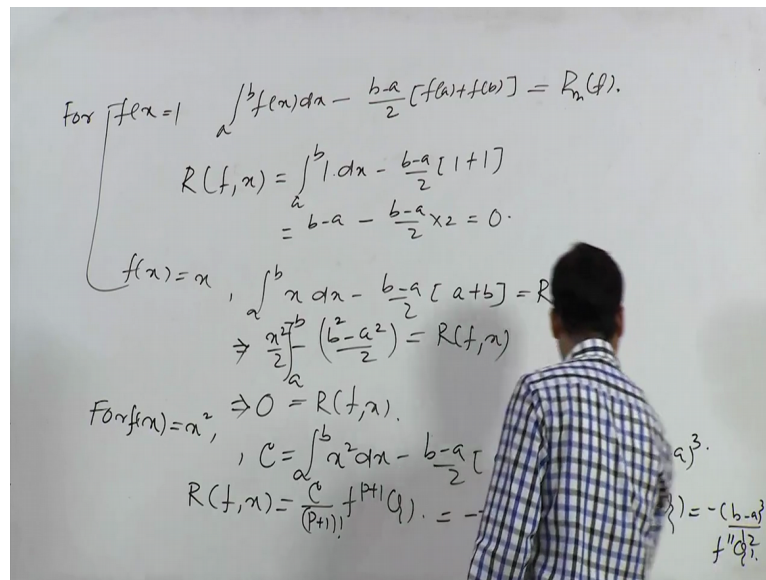 For f(x = 1 ∫_a^b f(x) dx − b-a/2 [f(a)+f(b)] = R_n(f).
R(f,x) = ∫_a^b 1.dx − b-a/2 [1+1]
= b-a − b-a/2 ×2 = 0.
f(x) = x , ∫_a^b x dx − b-a/2 [a+b] = R
⇒ x²/2]_a^b − (b²-a²/2) = R(f,x)
⇒ 0 = R(f,x).
For f(x) = x²,
, C = ∫_a^b x² dx − b-a/2 [ a)³.
R(f,x) = C/(p+1)! f^{p+1}(ξ). = − ) = -(b-a)³/12
f''(ξ).